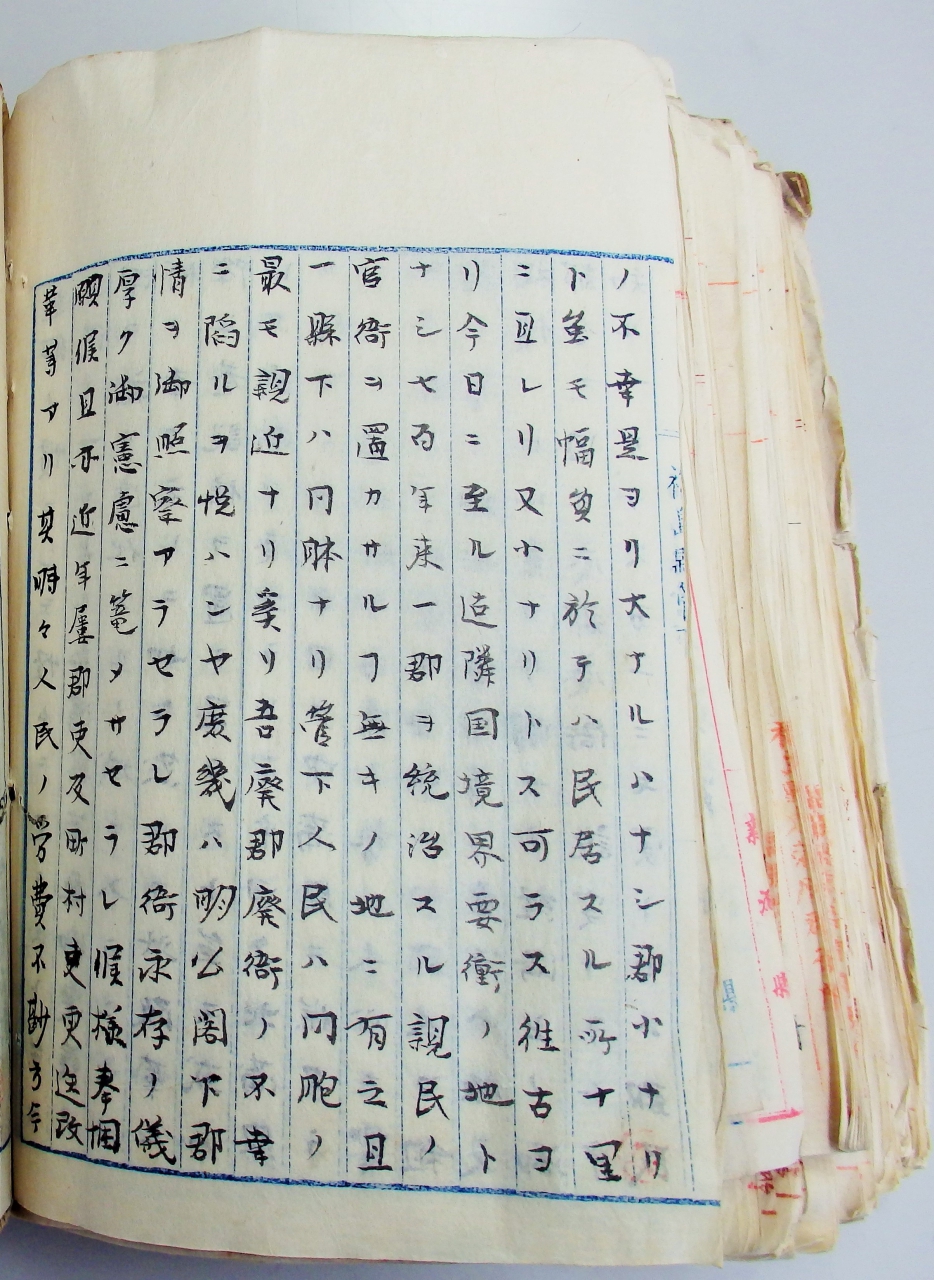 ノ不幸是ヨリ大ナルハナシ郡小ナリ
ト雖モ幅員ニ於テハ民居スル所十里
ニ亘レリ又小ナリトス可ラス往古ヨ
リ今日ニ至ル迠隣国境界要衝ノ地ト
ナシ七百年来一郡ヲ統治スル親民ノ
官衙ヲ置カサルヿ無キノ地ニ有之且
一縣下ハ同体ナリ管下人民ハ同胞ノ
最モ親近ナリ奚ソ吾廃郡廃衙ノ不幸
ニ陷ルヲ悦ハンヤ庶幾ハ明公閣下郡
情ヲ御照察アラセラレ郡衙永存ノ儀
厚ク御憲慮ニ篭メサセラレ候様奉悃
願候且亦近年屡郡吏及町村吏更迭改
革等アリ其時々人民ノ労費不尠方今
福島縣